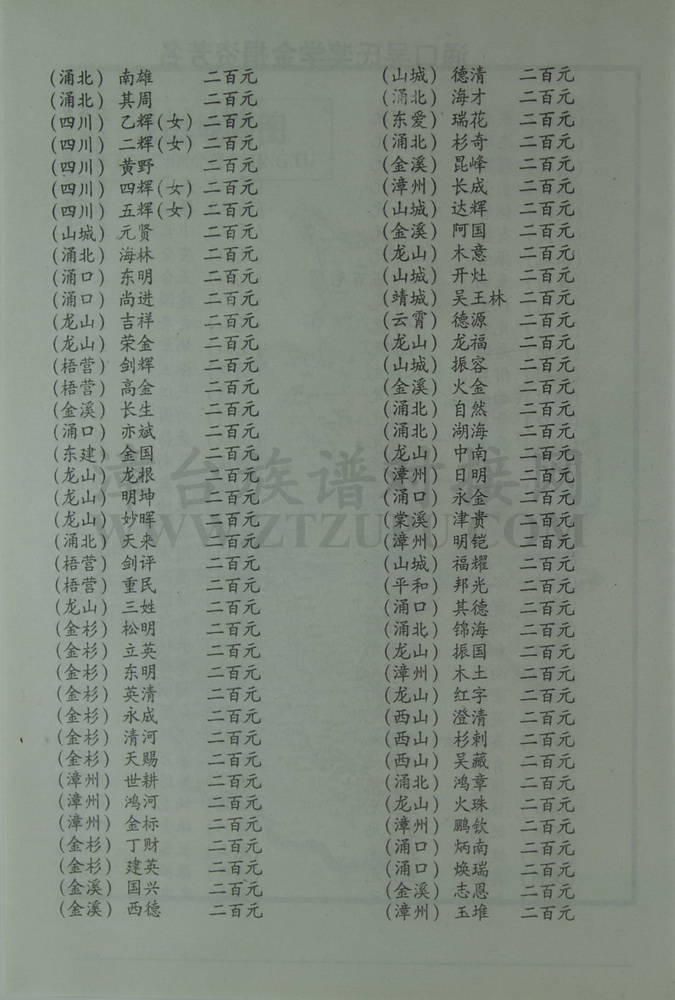 (涌北) 南雄 二百元
(涌北) 其周 二百元
(四川) 乙辉(女) 二百元
(四川) 二辉(女) 二百元
(四川) 黄野 二百元
(四川) 四辉(女) 二百元
(四川) 五辉(女) 二百元
(山城) 元贤 二百元
(涌北) 海林 二百元
(涌口) 东明 二百元
(涌口) 尚进 二百元
(龙山) 吉祥 二百元
(龙山) 荣金 二百元
(梧营) 剑辉 二百元
(梧营) 高金 二百元
(金溪) 长生 二百元
(涌口) 亦斌 二百元
(东建) 金国 二百元
(龙山) 龙根 二百元
(龙山) 明坤 二百元
(龙山) 妙晖 二百元
(涌北) 天来 二百元
(梧营) 剑评 二百元
(梧营) 重民 二百元
(龙山) 三姓 二百元
(金杉) 松明 二百元
(金杉) 立英 二百元
(金杉) 东明 二百元
(金杉) 英清 二百元
(金杉) 永成 二百元
(金杉) 清河 二百元
(金杉) 天赐 二百元
(漳州) 世耕 二百元
(漳州) 鸿河 二百元
(漳州) 金标 二百元
(金杉) 丁财 二百元
(金杉) 建英 二百元
(金溪) 国兴 二百元
(金溪) 西德 二百元
(山城) 德清 二百元
(涌北) 海才 二百元
(东爱) 瑞花 二百元
(涌北) 杉奇 二百元
(金溪) 昆峰 二百元
(漳州) 长成 二百元
(山城) 达辉 二百元
(金溪) 阿国 二百元
(龙山) 木意 二百元
(山城) 开灶 二百元
(靖城) 吴王林 二百元
(云霄) 德源 二百元
(龙山) 龙福 二百元
(山城) 振容 二百元
(金溪) 火金 二百元
(涌北) 自然 二百元
(涌北) 湖海 二百元
(龙山) 中南 二百元
(漳州) 日明 二百元
(涌口) 永金 二百元
(棠溪) 津贵 二百元
(漳州) 明铠 二百元
(山城) 福耀 二百元
(平和) 邦光 二百元
(涌口) 其德 二百元
(涌北) 锦海 二百元
(龙山) 振国 二百元
(漳州) 木土 二百元
(龙山) 红字 二百元
(西山) 澄清 二百元
(西山) 杉刺 二百元
(西山) 吴藏 二百元
(涌北) 鸿章 二百元
(龙山) 火珠 二百元
(漳州) 鹏钦 二百元
(涌口) 炳南 二百元
(涌口) 焕瑞 二百元
(金溪) 志恩 二百元
(漳州) 玉堆 二百元